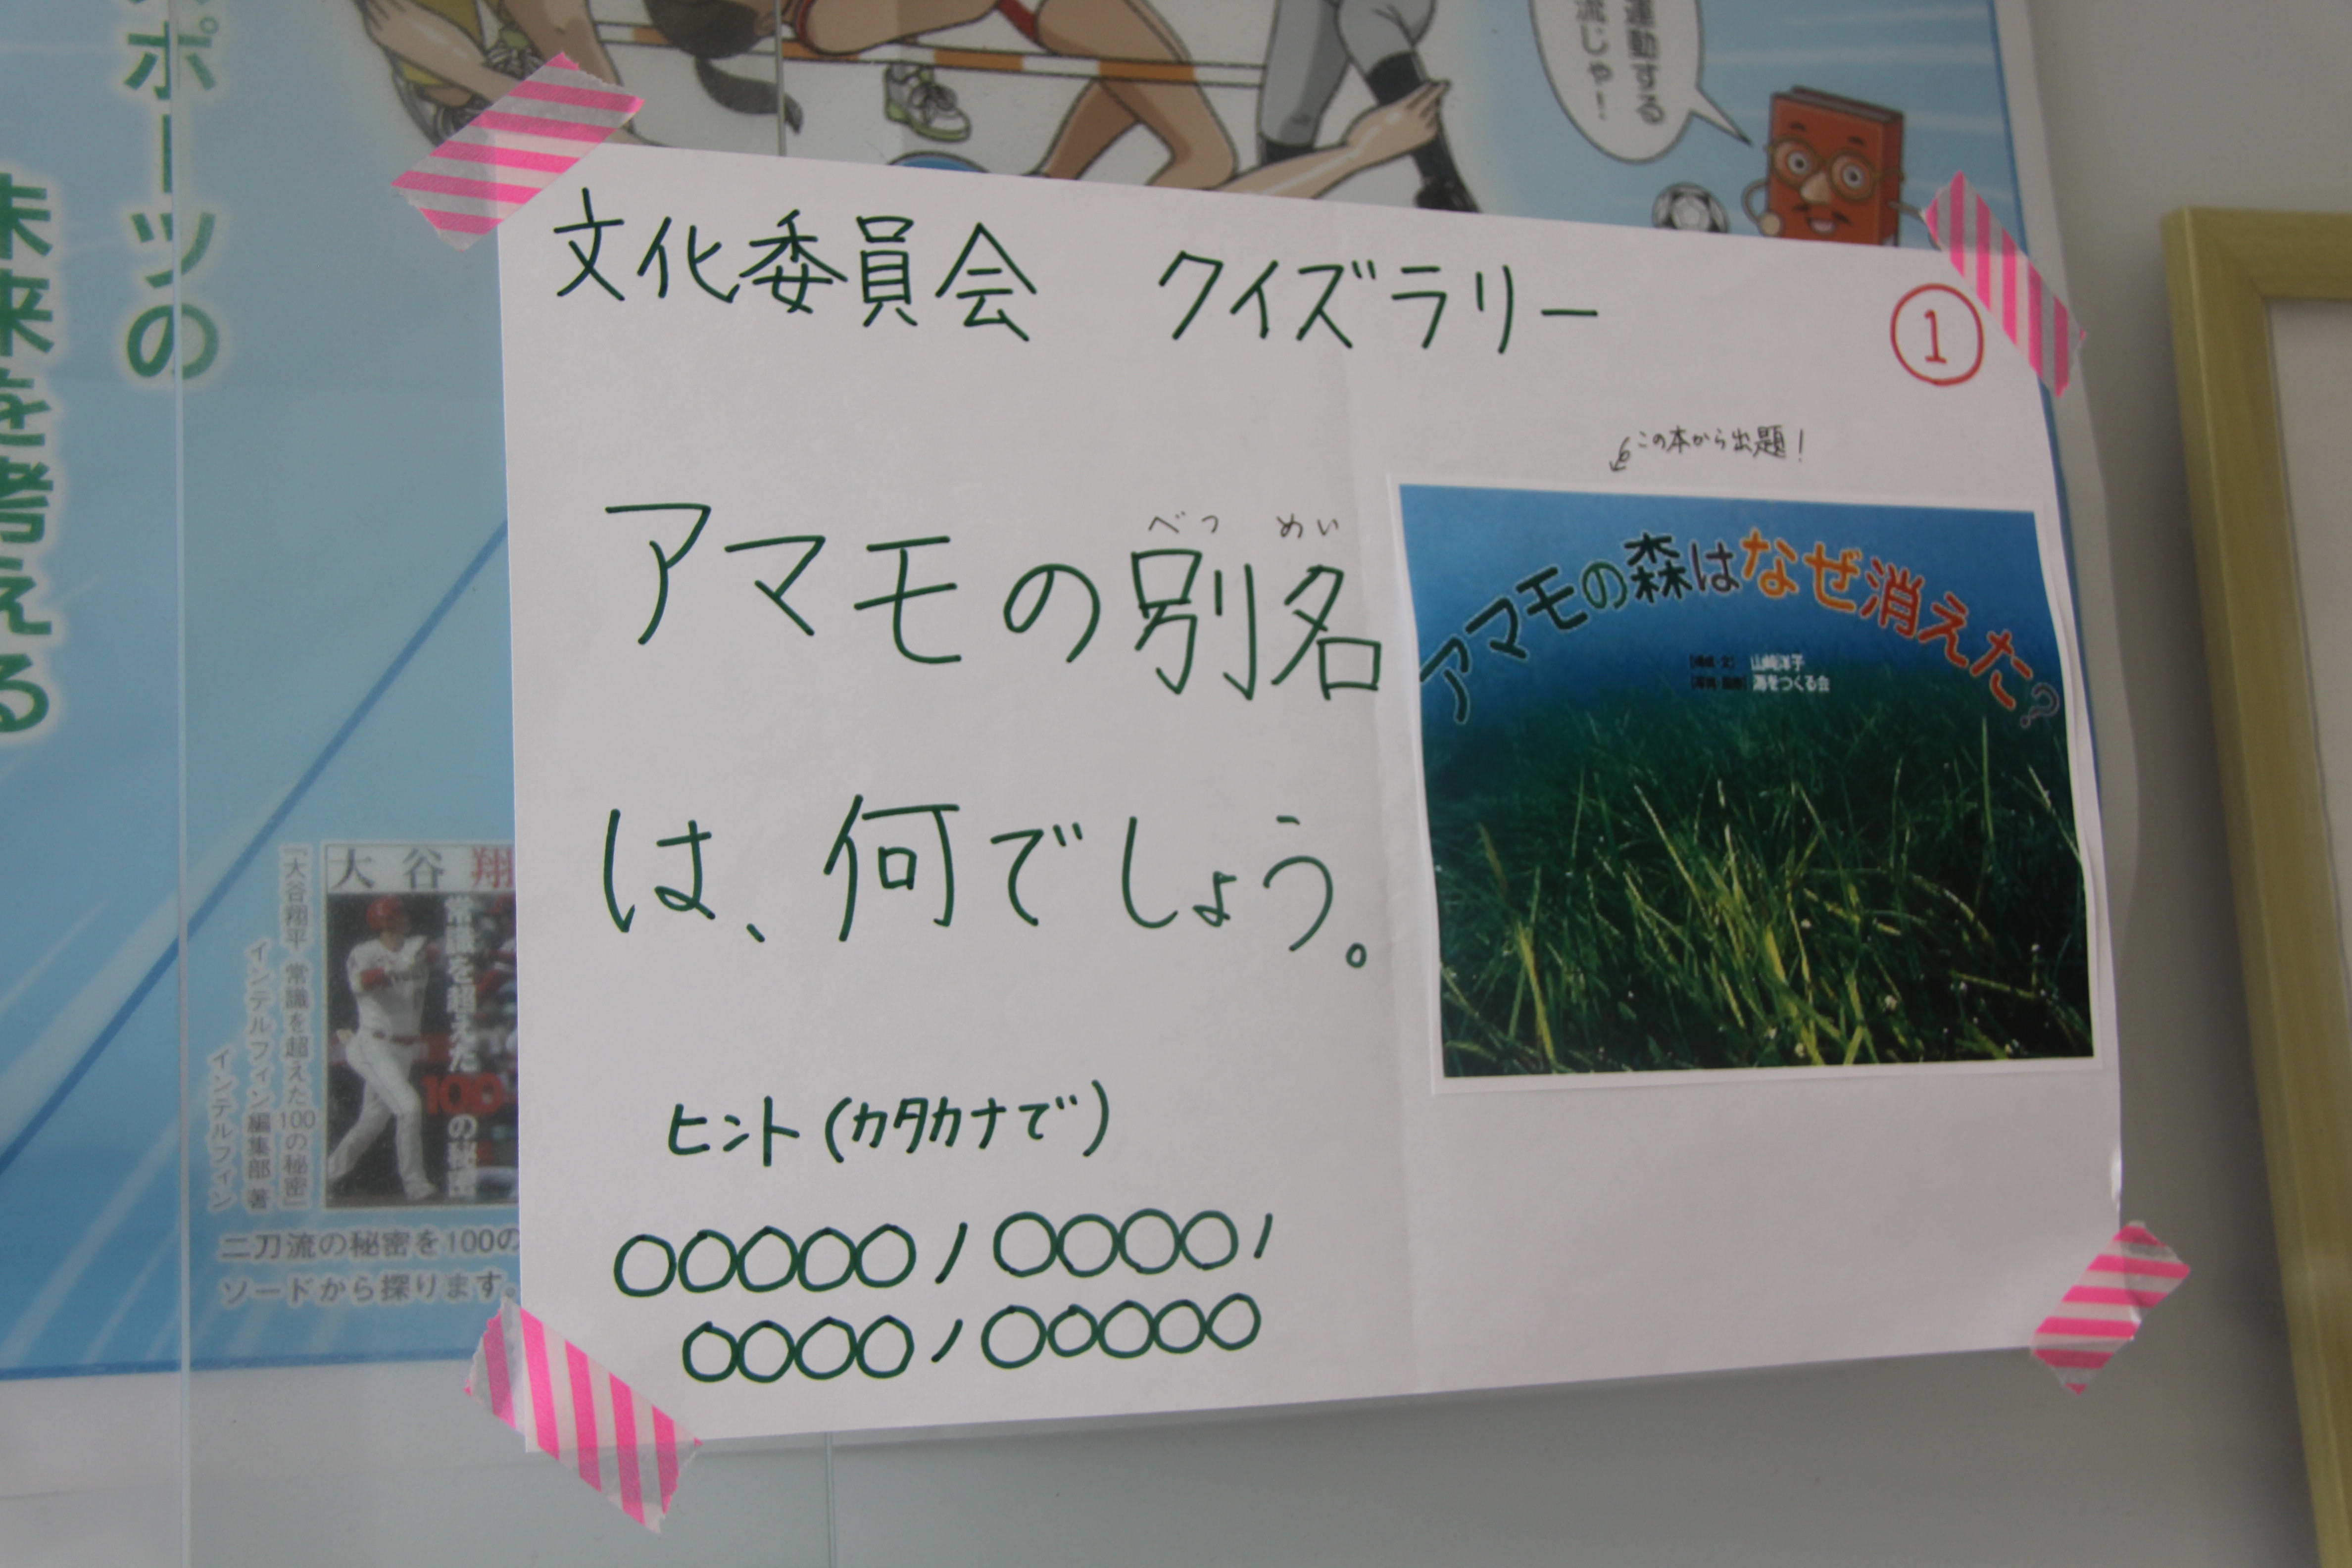 ポーツの
未来を考える
運動する
流じゃ！
文化委員会 クイズラリー
①
この本から出題！
べつ めい
アマモの別名
は、何でしょう。
アマモの森はなぜ消えた？
山崎洋子
海をつくる会
ヒント(カタカナで)
○○○○○, ○○○○,
○○○○, ○○○○○
大谷翔
常識を超えた
100の秘密
『大谷翔平 常識を超えた100の秘密』
インテルフィン編集部 著
インテルフィン
二刀流の秘密を100の
ソードから探ります。